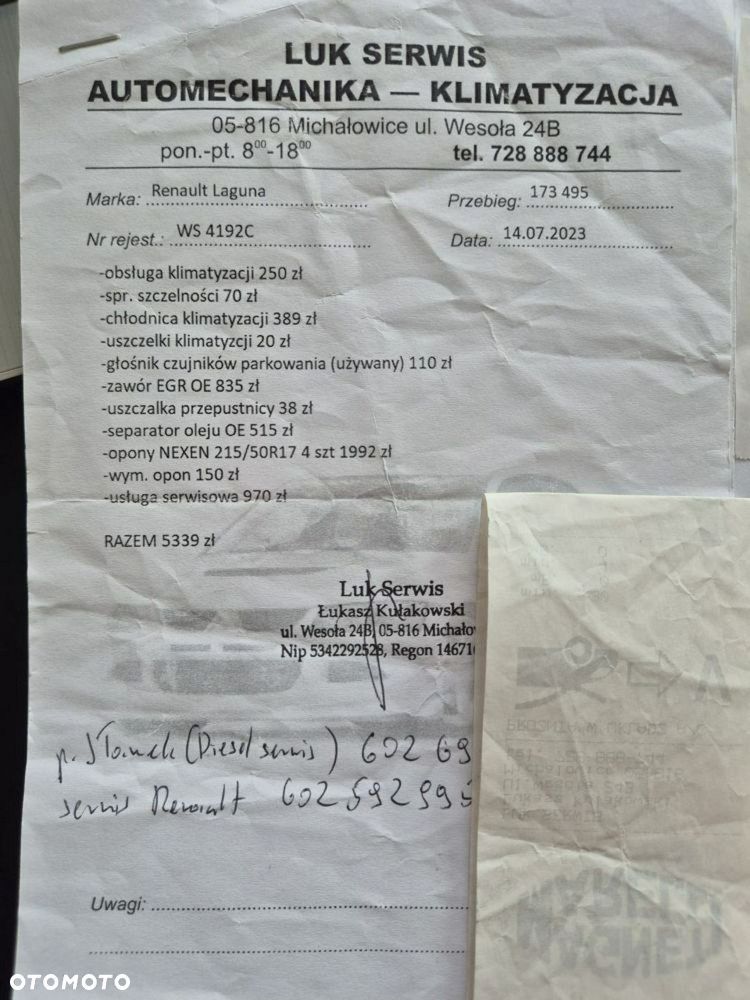 LUK SERWIS
AUTOMECHANIKA — KLIMATYZACJA
05-816 Michałowice ul. Wesoła 24B
pon.-pt. 8⁰⁰-18⁰⁰ tel. 728 888 744
Marka: Renault Laguna Przebieg: 173 495
Nr rejest.: WS 4192C Data: 14.07.2023
-obsługa klimatyzacji 250 zł
-spr. szczelności 70 zł
-chłodnica klimatyzacji 389 zł
-uszczelki klimatyzcji 20 zł
-głośnik czujników parkowania (używany) 110 zł
-zawór EGR OE 835 zł
-uszczalka przepustnicy 38 zł
-separator oleju OE 515 zł
-opony NEXEN 215/50R17 4 szt 1992 zł
-wym. opon 150 zł
-usługa serwisowa 970 zł
RAZEM 5339 zł
Luk Serwis
Łukasz Kułakowski
ul. Wesoła 24B, 05-816 Michało
Nip 5342292528, Regon 14671
p. (Diesel serwis) 602 69
serwis Renault 602 592 995
Uwagi:
MAGNETI
MARELLI
OTOMOTO